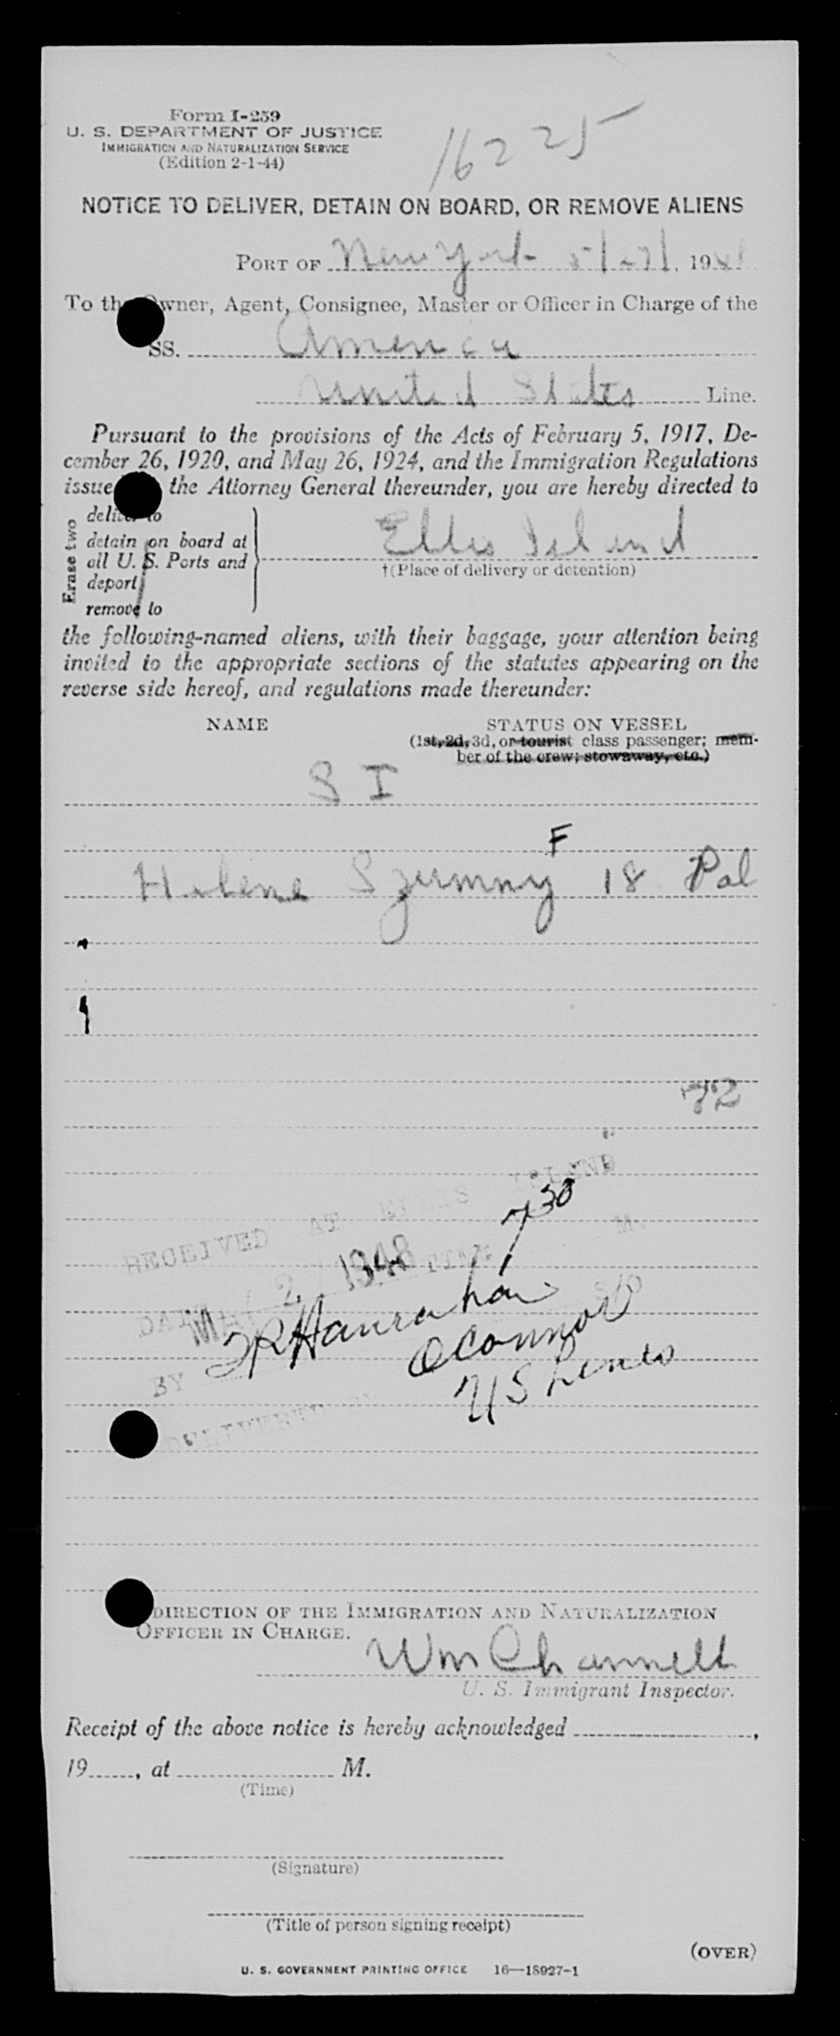 Form I-259
U. S. DEPARTMENT OF JUSTICE
IMMIGRATION AND NATURALIZATION SERVICE
(Edition 2-1-44)
16225
NOTICE TO DELIVER, DETAIN ON BOARD, OR REMOVE ALIENS
PORT OF New York 5/27/, 1948
To the Owner, Agent, Consignee, Master or Officer in Charge of the
SS. America
United States Line.
Pursuant to the provisions of the Acts of February 5, 1917, De-
cember 26, 1920, and May 26, 1924, and the Immigration Regulations
issued the Attorney General thereunder, you are hereby directed to
Erase two
deliver to
detain on board at
all U. S. Ports and
deport
remove to
Ellis Island
†(Place of delivery or detention)
the following-named aliens, with their baggage, your attention being
invited to the appropriate sections of the statutes appearing on the
reverse side hereof, and regulations made thereunder:
NAME STATUS ON VESSEL
(1st, 2d, 3d, or tourist class passenger; mem-
ber of the crew; stowaway, etc.)
S I
F
Helene Szumny 18 Pol
72
RECEIVED AT ELLIS ISLAND
730 M.
DATE MAY 2 1948
BY Hanrahan
O'Connor
US Lines
DELIVERED BY
DIRECTION OF THE IMMIGRATION AND NATURALIZATION
OFFICER IN CHARGE.
Wm Channell
U. S. Immigrant Inspector.
Receipt of the above notice is hereby acknowledged ,
19 , at M.
(Time)
(Signature)
(Title of person signing receipt)
(OVER)
U. S. GOVERNMENT PRINTING OFFICE 16—18927-1